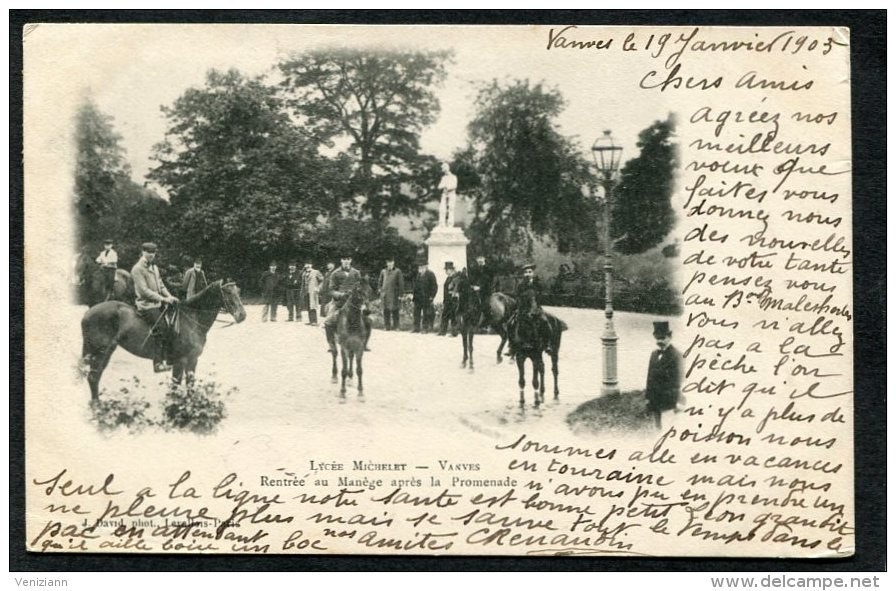 Vanves le 19 Janvier 1903
Chers Amis
Agréez nos
meilleurs
voeux que
faites vous
donnez nous
des nouvelles
de votre tante
pensez vous
au Malesherbes
Vous n'allez
pas a la
pêche l'on
dit qu'il
n'y a plus de
poisson nous
sommes allé en vacances
en touraine mais nous
n'avons pu en prendre un
Seul a la ligne notre santé est bonne petit Léon grandit
ne pleure plus mais se sauve tout le temps dans le
parc en attendant
qu'il aille boire un boc nos amités
LYCÉE MICHELET — VANVES
Rentrée au Manège après la Promenade
J. David, phot., Levallois-Paris
Veniziann